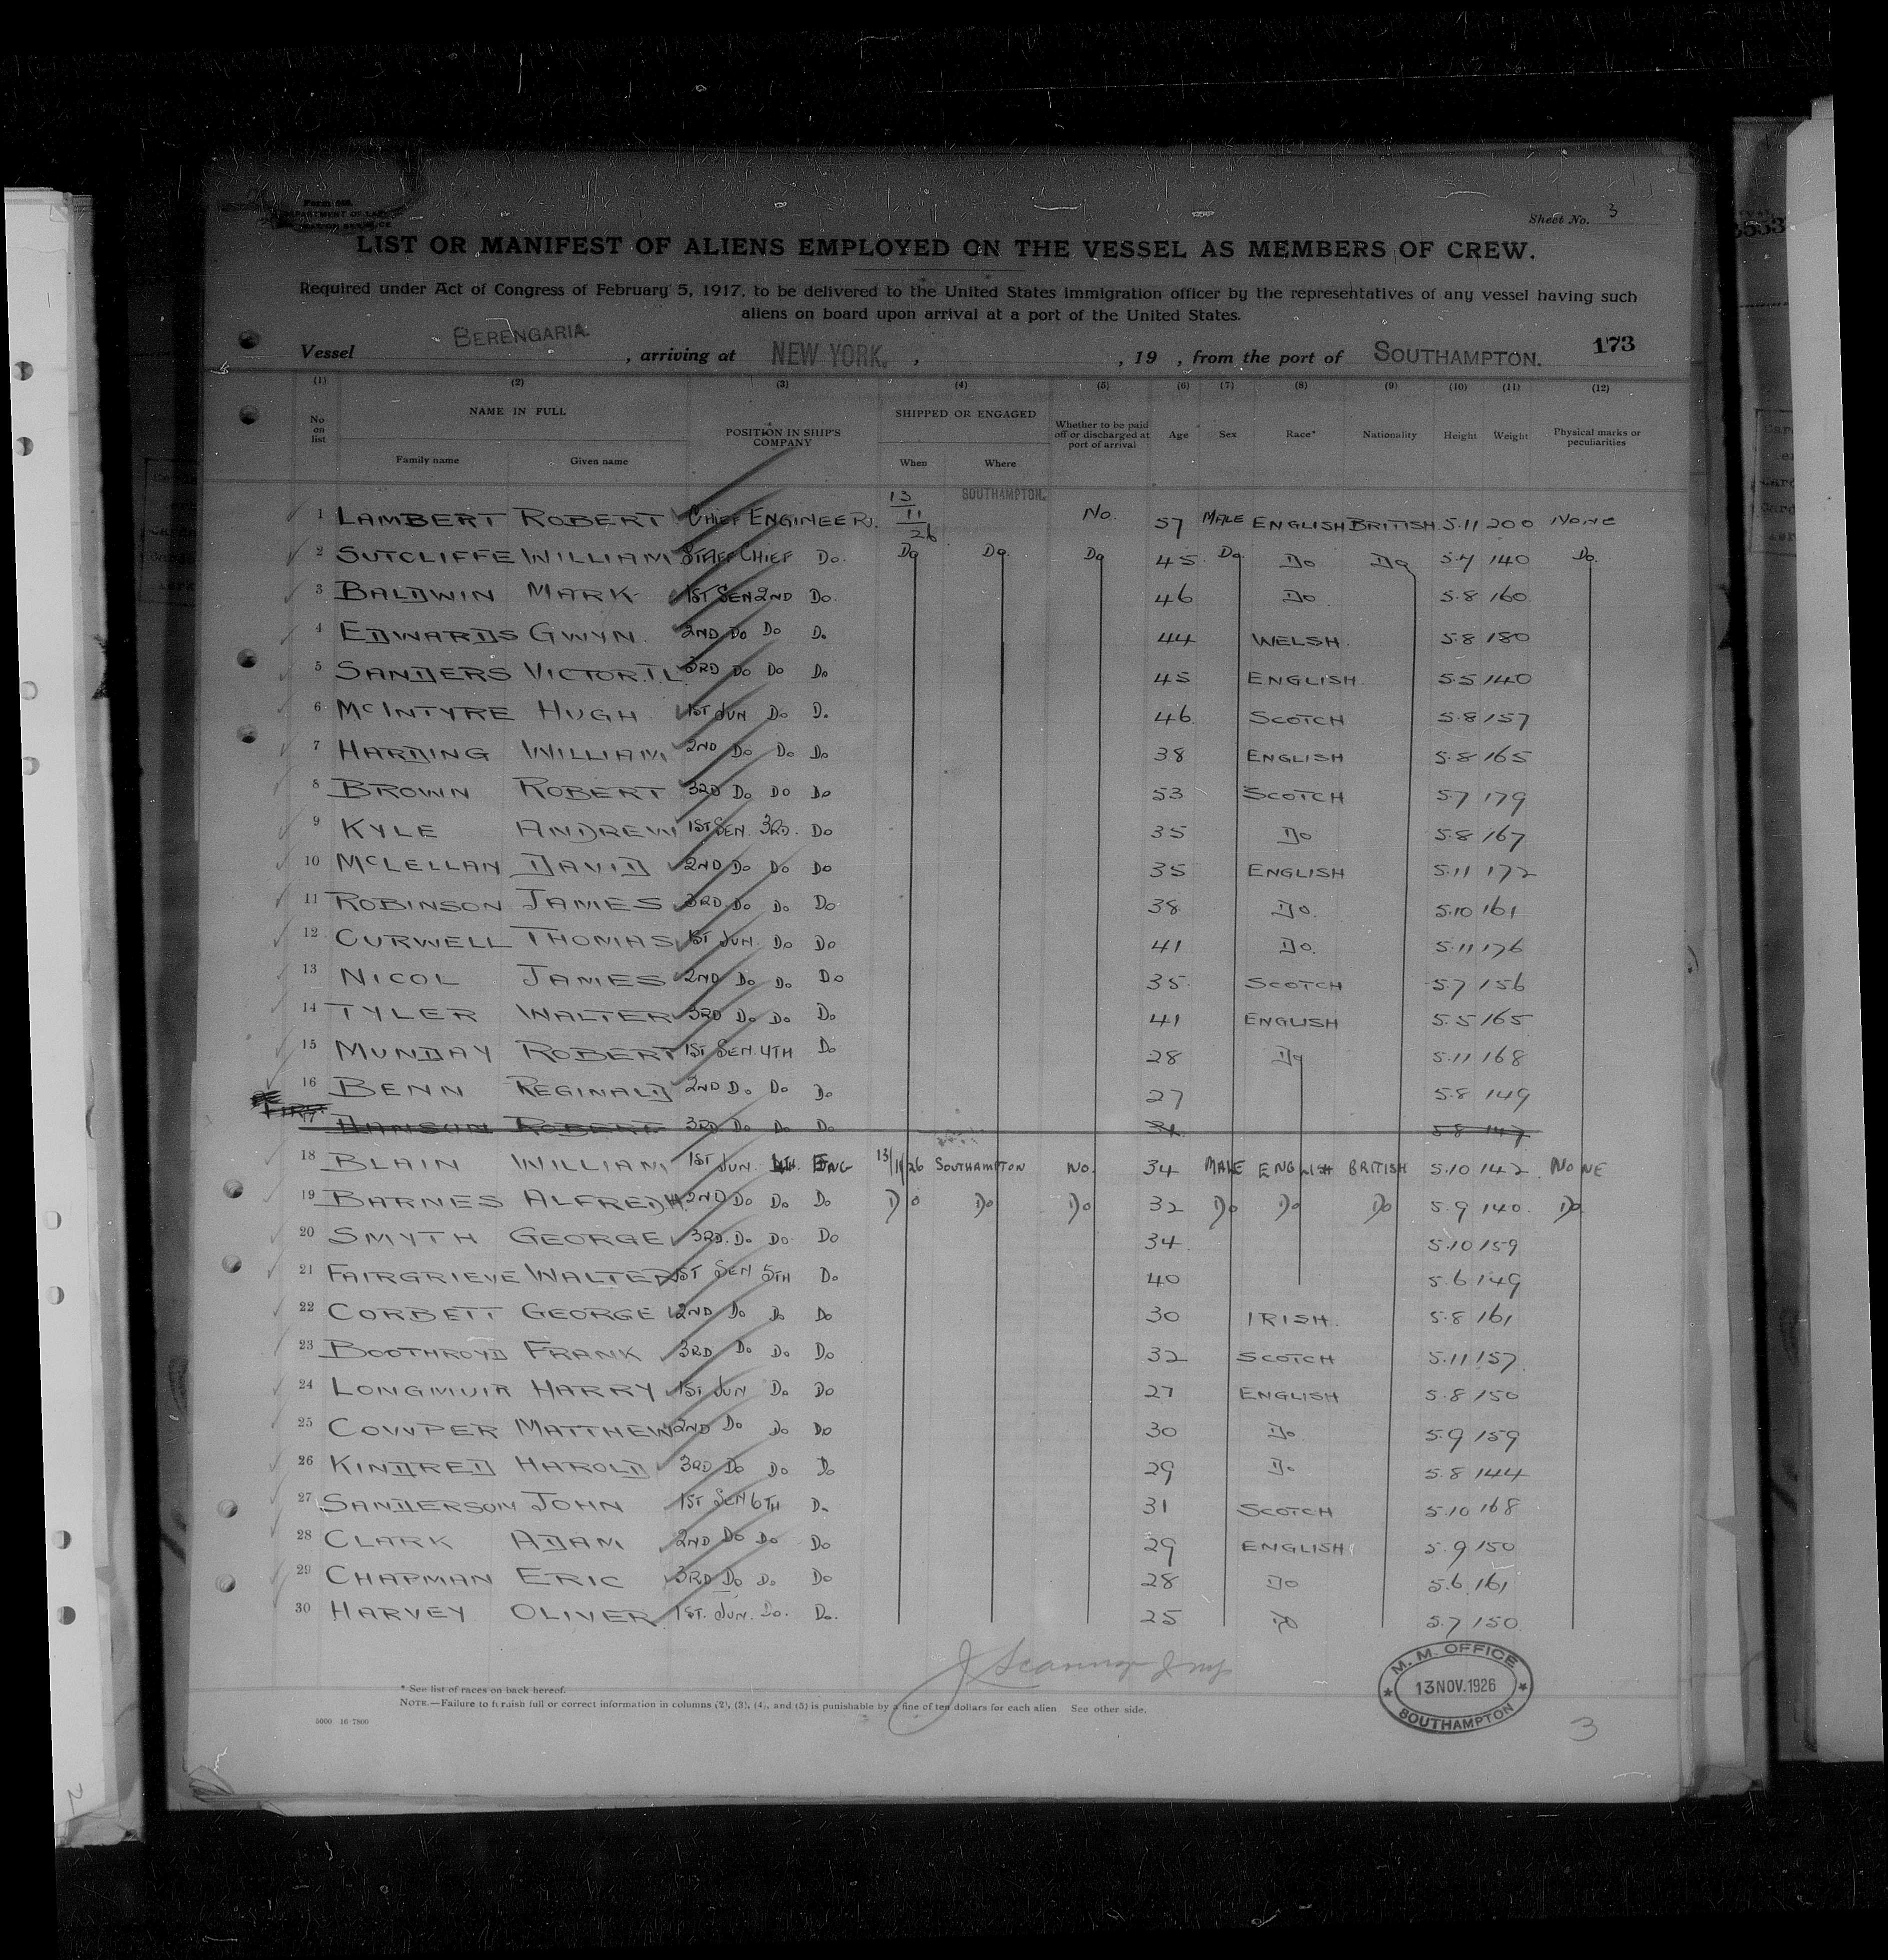 Sheet No. 3
LIST OR MANIFEST OF ALIENS EMPLOYED ON THE VESSEL AS MEMBERS OF CREW.
Required under Act of Congress of February 5, 1917, to be delivered to the United States immigration officer by the representatives of any vessel having such
aliens on board upon arrival at a port of the United States.
Vessel BERENGARIA. , arriving at NEW YORK. , , 19 , from the port of SOUTHAMPTON. 173
(1) (2) (3) (4) (5) (6) (7) (8) (9) (10) (11) (12)
No on list NAME IN FULL Family name Given name POSITION IN SHIP'S COMPANY SHIPPED OR ENGAGED When Where Whether to be paid off or discharged at port of arrival Age Sex Race* Nationality Height Weight Physical marks or peculiarities
1 LAMBERT ROBERT CHIEF ENGINEER. 13/11/26 SOUTHAMPTON. No. 57 MALE ENGLISH BRITISH 5.11 200 NONE
2 SUTCLIFFE WILLIAM STAFF CHIEF Do. Do Do. Do 45 Do Do Do 5.7 140 Do.
3 BALDWIN MARK 1ST SEN 2ND Do. 46 Do 5.8 160
4 EDWARDS GWYN. 2ND Do Do Do 44 WELSH. 5.8 180
5 SANDERS VICTOR.T.L 3RD Do Do Do 45 ENGLISH. 5.5 140
6 McINTYRE HUGH 1ST JUN Do Do 46 SCOTCH 5.8 157
7 HARDING WILLIAM 2ND Do Do Do 38 ENGLISH 5.8 165
8 BROWN ROBERT 3RD Do Do Do 53 SCOTCH 5.7 179
9 KYLE ANDREW 1ST SEN. 3RD. Do 35 Do 5.8 167
10 McLELLAN DAVID 2ND Do Do Do 35 ENGLISH 5.11 172
11 ROBINSON JAMES 3RD. Do Do Do 38 Do. 5.10 161
12 CURWELL THOMAS 1ST JUN. Do Do 41 Do. 5.11 176
13 NICOL JAMES 2ND Do Do. Do 35 SCOTCH 5.7 156
14 TYLER WALTER 3RD Do Do Do 41 ENGLISH 5.5 165
15 MUNDAY ROBERT 1ST SEN. 4TH Do 28 Do 5.11 168
16 BENN REGINALD 2ND Do. Do Do 27 5.8 149
FIRST HANSON ROBERT 3RD Do Do Do 5.8 147
18 BLAIN WILLIAM 1ST JUN. 4TH. ENG 13/11/26 SOUTHAMPTON NO. 34 MALE ENGLISH BRITISH 5.10 142 NONE
19 BARNES ALFRED H. 2ND Do Do Do Do Do Do 32 Do Do Do 5.9 140. Do
20 SMYTH GEORGE 3RD. Do Do. Do 34 5.10 159
21 FAIRGRIEVE WALTER 1ST SEN 5TH Do 40 5.6 149
22 CORBETT GEORGE 2ND Do Do Do 30 IRISH. 5.8 161
23 BOOTHROYD FRANK 3RD Do Do Do 32 SCOTCH 5.11 157
24 LONGMUIR HARRY 1ST JUN Do Do 27 ENGLISH 5.8 150
25 COWPER MATTHEW 2ND Do Do Do 30 Do. 5.9 159
26 KINDRED HAROLD 3RD Do Do Do 29 Do 5.8 144
27 SANDERSON JOHN 1ST SEN 6TH Do 31 SCOTCH 5.10 168
28 CLARK ADAM 2ND Do Do Do 29 ENGLISH 5.9 150
29 CHAPMAN ERIC 3RD Do Do Do 28 Do 5.6 161
30 HARVEY OLIVER 1ST. JUN. Do. Do. 25 Do 5.7 150
* See list of races on back hereof.
NOTE.—Failure to furnish full or correct information in columns (2), (3), (4), and (5) is punishable by a fine of ten dollars for each alien See other side.
M. M. OFFICE
13 NOV. 1926
SOUTHAMPTON
3